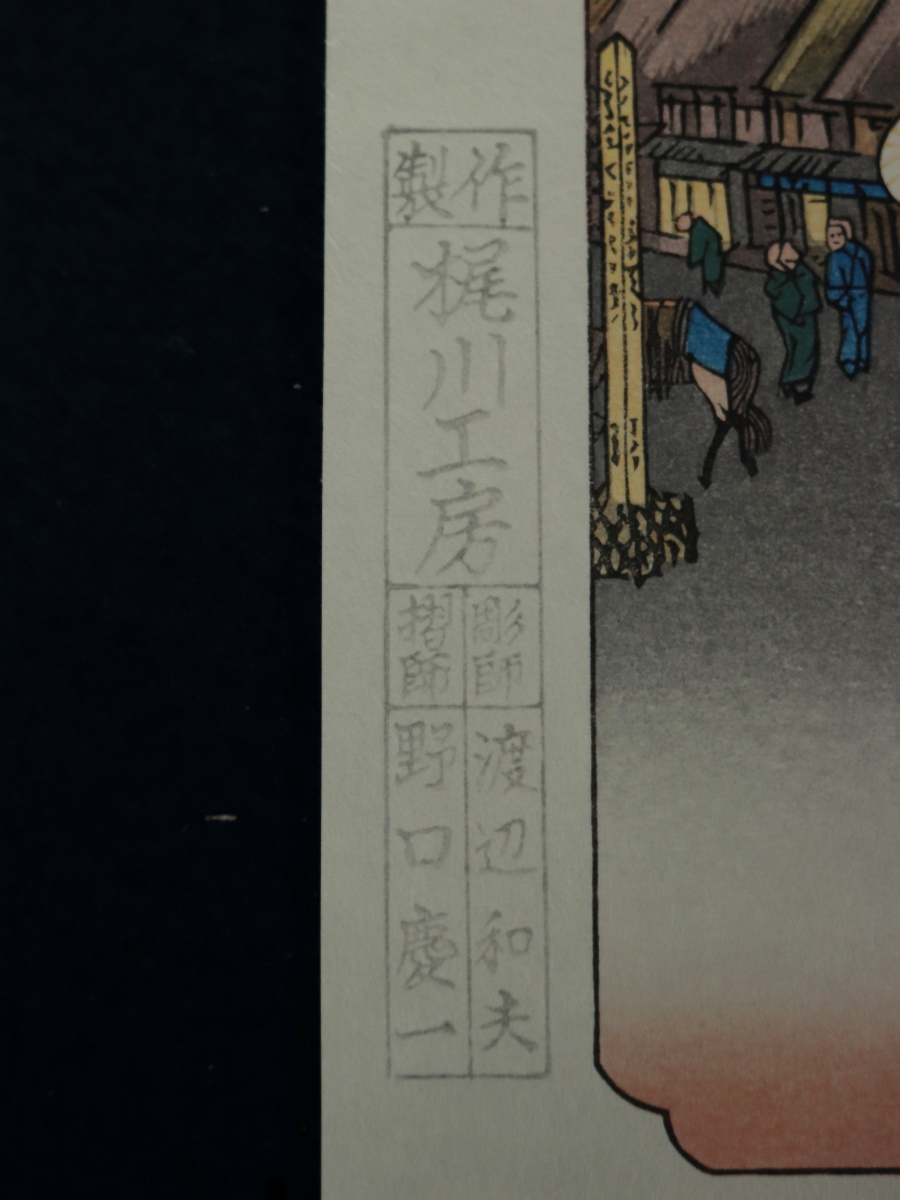 製作
梶川工房
彫師
渡辺和夫
摺師
野口慶一